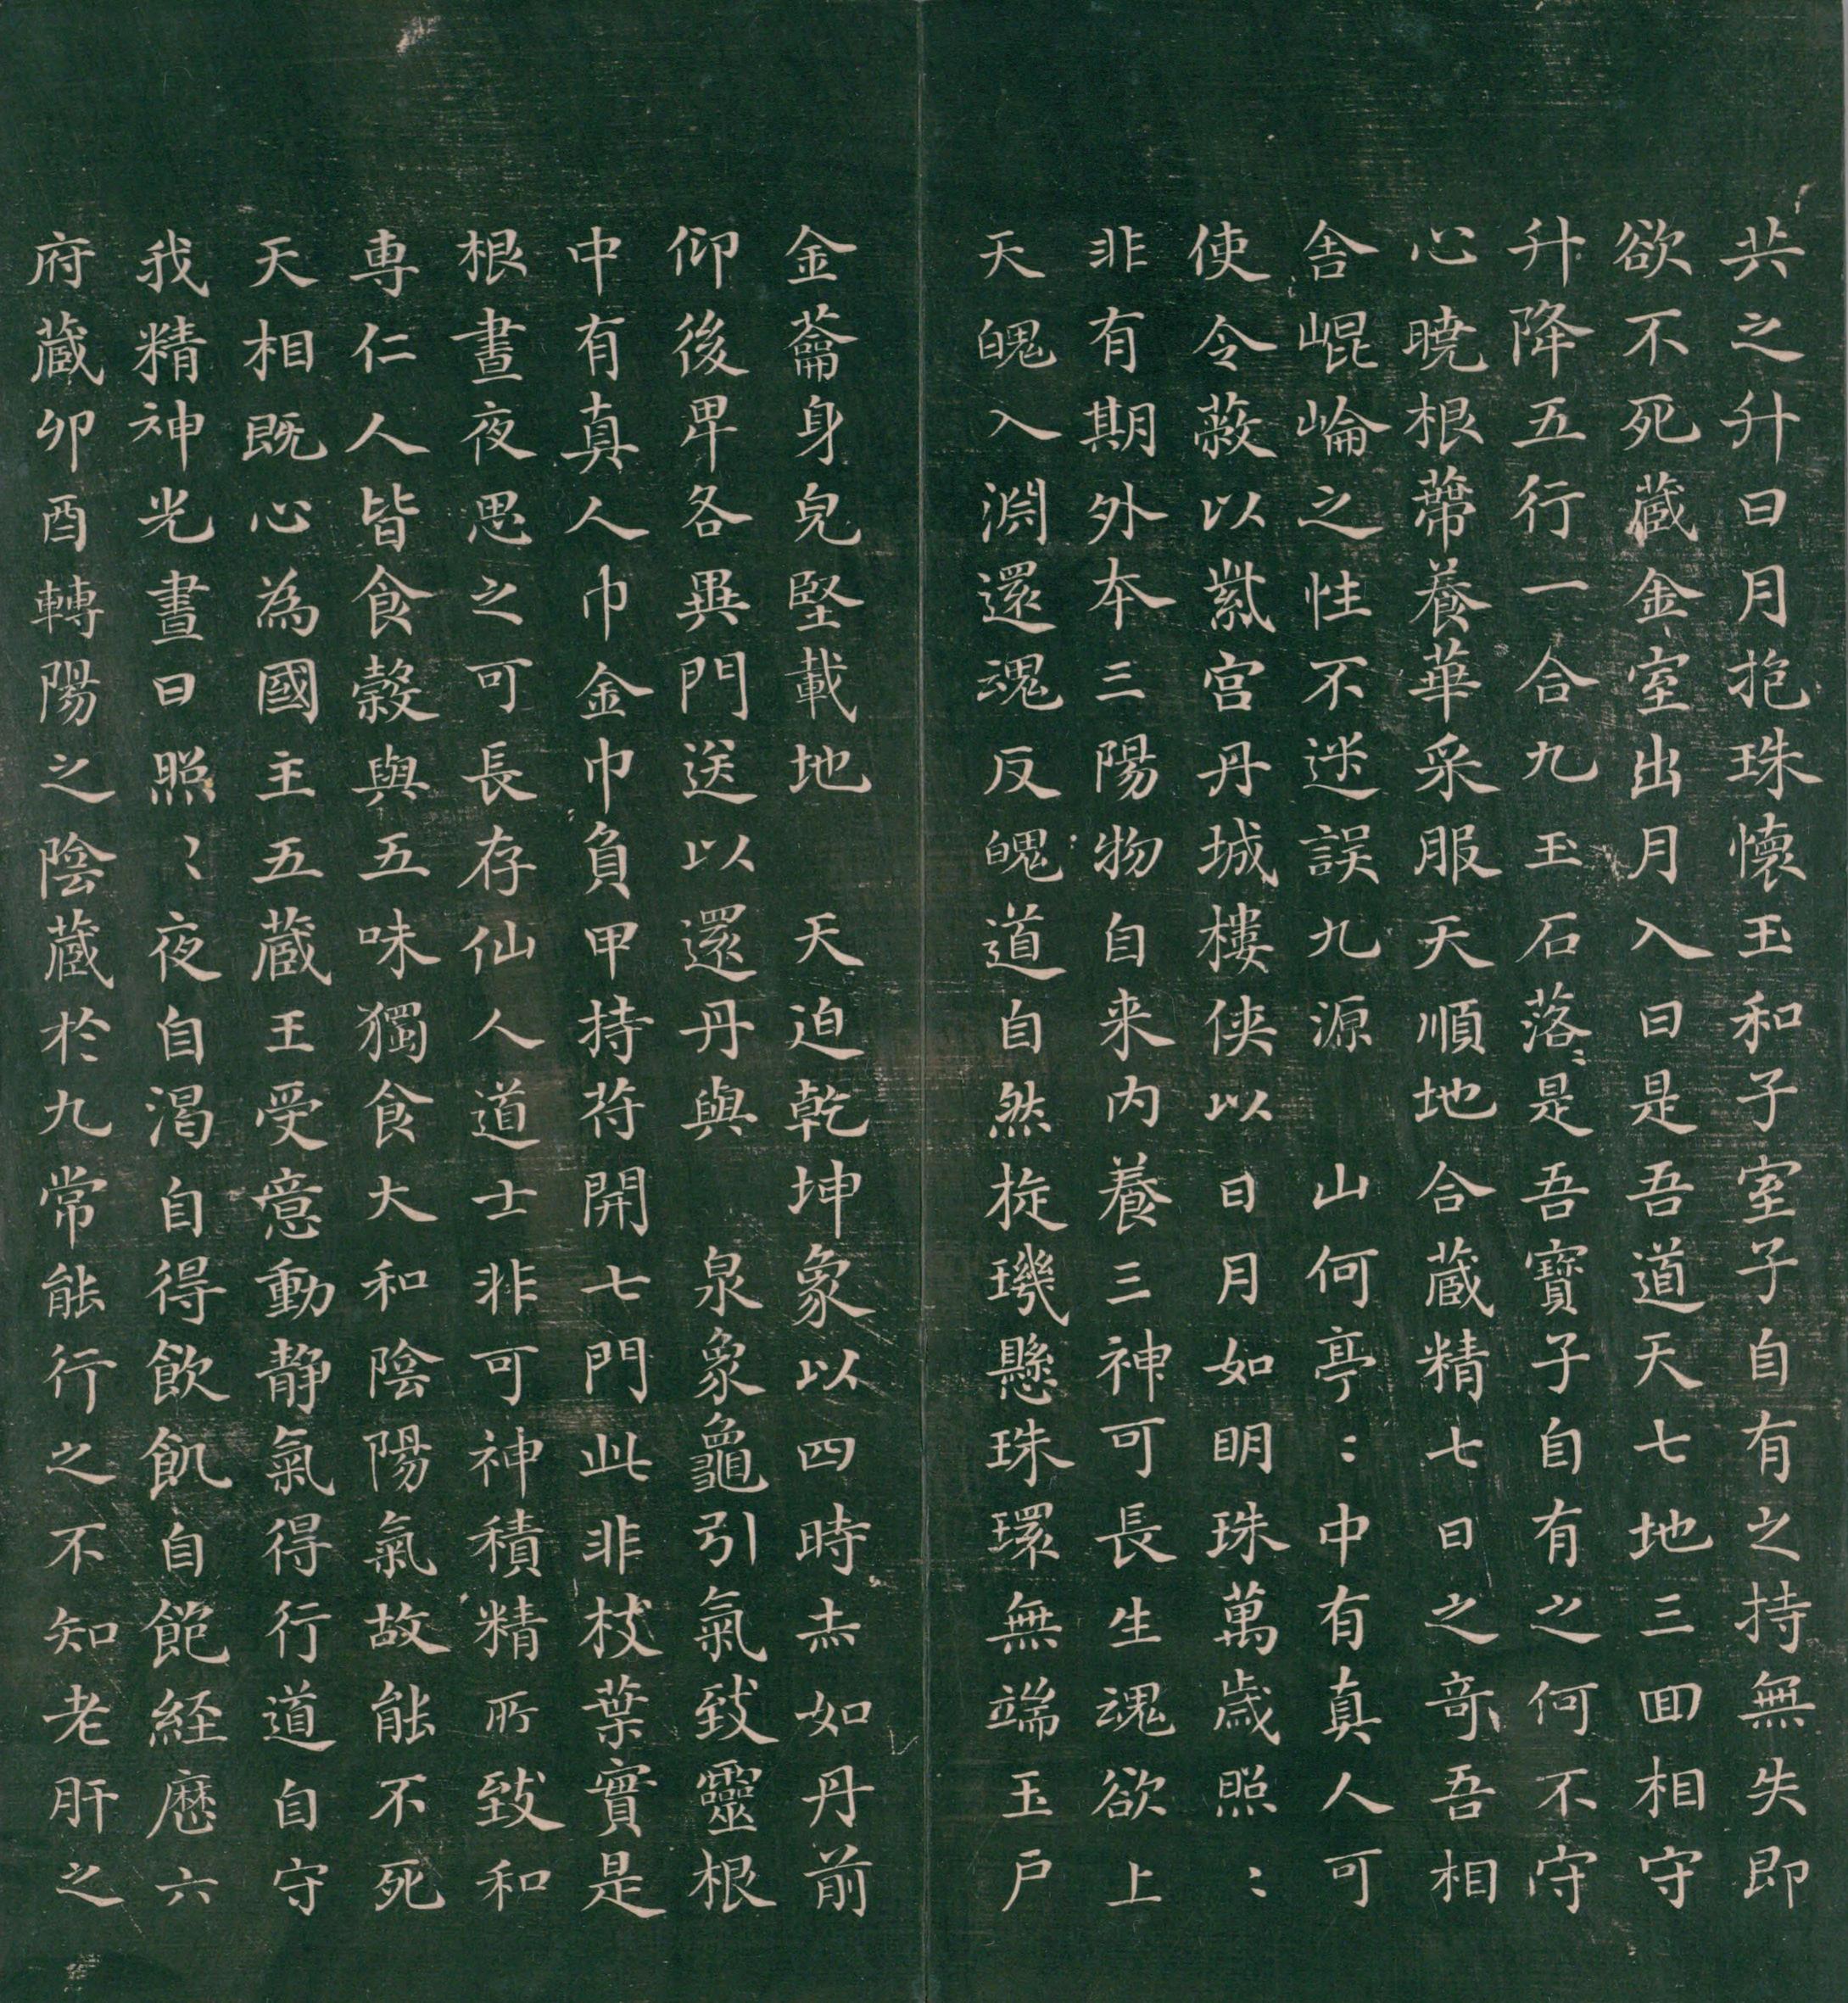 共之升日月抱珠懷玉和子室子自有之持無失即
欲不死藏金室出月入日是吾道天七地三回相守
升降五行一合九玉石落〻是吾寶子自有之何不守
心曉根蔕養華采服天順地合藏精七日之竒吾相
舍崐崘之性不迷誤九源 山何亭〻中有真人可
使令蔽以紫宮丹城樓俠以日月如明珠萬歲照〻
非有期外本三陽物自来內養三神可長生魂欲上
天魄入淵還魂反魄道自然㧞璣懸珠環無端玉戶
金蘥身皃堅載地 天迫乾坤象以四時赤如丹前
仰後卑各異門送以還丹與 泉象龜引氣致靈根
中有真人巾金巾負甲持苻開七門此非枝葉實是
根晝夜思之可長存仙人道士非可神積精所致和
專仁人皆食榖與五味獨食大和陰陽氣故能不死
天相既心為國主五蔵王受意動静氣得行道自守
我精神光晝日照〻夜自渴自得飲飢自飽経歷六
府蔵卯酉轉陽之陰蔵於九常能行之不知老肝之